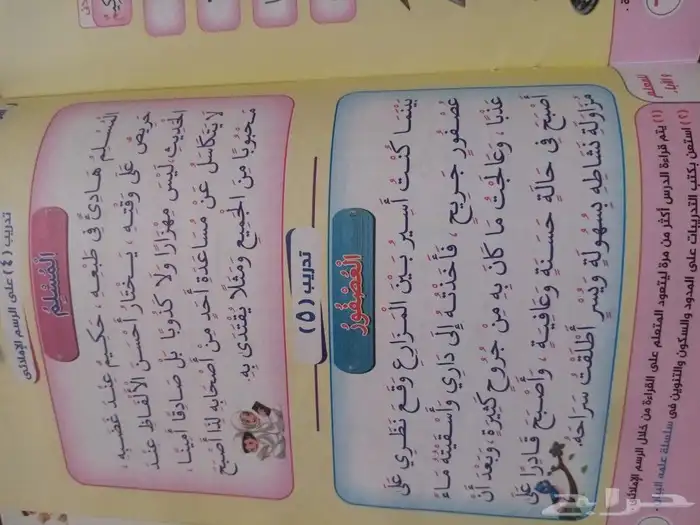 تدريب (٤) على الرسم الإملائي
الْمُسْلِم
الْمُسْلِمُ هَادِئٌ فِي طَبْعِهِ، حَكِيمٌ عِنْدَ غَضَبِهِ،
حَرِيصٌ عَلَى وَقْتِهِ، يَخْتَارُ أَحْسَنَ الْأَلْفَاظِ عِنْدَ
الْحَدِيثِ، لَيْسَ مِهْزَارًا وَلَا كَذُوبًا بَلْ صَادِقًا أَمِينًا،
لَا يَتَكَاسَلُ عَنْ مُسَاعَدَةِ أَحَدٍ مِنْ أَصْحَابِهِ لِذَا أَصْبَحَ
مَحْبُوبًا مِنَ الْجَمِيعِ وَمَثَلًا يُقْتَدَى بِهِ.
تدريب (٥)
الْعُصْفُورُ
بَيْنَمَا كُنْتُ أَسِيرُ بَيْنَ الْمَزَارِعِ وَقَعَ نَظَرِي عَلَى
عُصْفُورٍ جَرِيحٍ، فَأَخَذْتُهُ إِلَى دَارِي وَأَسْقَيْتُهُ مَاءً
عَذْبًا، وَعَالَجْتُ مَا كَانَ بِهِ مِنْ جُرُوحٍ كَثِيرَةٍ، وَبَعْدَ أَنْ
أَصْبَحَ فِي حَالَةٍ حَسَنَةٍ وَعَافِيَةٍ، وَأَصْبَحَ قَادِرًا عَلَى
مُزَاوَلَةِ نَشَاطِهِ بِسُهُولَةٍ وَيُسْرٍ أَطْلَقْتُ سَرَاحَهُ.
للمعلم
(١) يتم قراءة الدرس أكثر من مرة ليتعود المتعلم على القراءة من خلال الرسم الإملائي
(٢) استعن بكتب التدريبات على المدود والسكون والتنوين في سلسلة علمه البيان
حراج